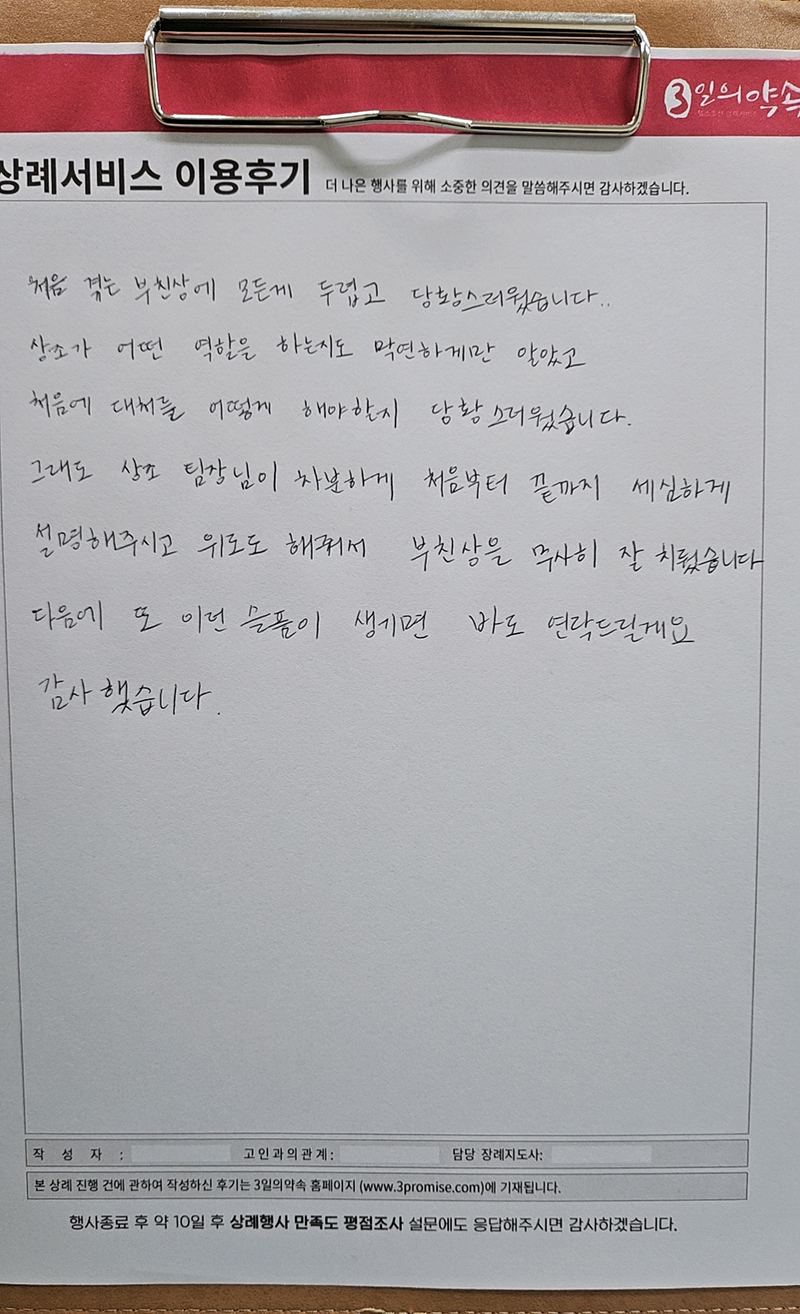 3일의약속
상례서비스 이용후기 더 나은 행사를 위해 소중한 의견을 말씀해주시면 감사하겠습니다.
처음 겪는 부친상에 모든게 두렵고 당황스러웠습니다..
상조가 어떤 역할을 하는지도 막연하게만 알았고
처음에 대처를 어떻게 해야할지 당황스러웠습니다.
그래도 상조 팀장님이 차분하게 처음부터 끝까지 세심하게
설명해주시고 위로도 해줘서 부친상을 무사히 잘 치뤘습니다
다음에 또 이런 슬픔이 생기면 바로 연락드릴게요
감사했습니다.
작 성 자 : 고인과의관계: 담당 장례지도사:
본 상례 진행 건에 관하여 작성하신 후기는 3일의약속 홈페이지 (www.3promise.com)에 기재됩니다.
행사종료 후 약 10일 후 상례행사 만족도 평점조사 설문에도 응답해주시면 감사하겠습니다.